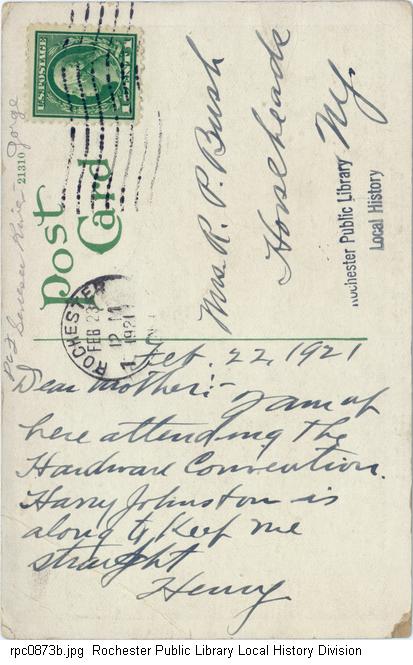 Feb. 22, 1921
Dear Mother:-
I am up
here attending the
Hardware Convention.
Harry Johnston is
along to keep me
straight
Henry
Mrs. R. P. Bush
Horseheads
N.Y.
Post
Card
21310
U.S. POSTAGE
1 CENT 1
ROCHESTER
FEB 23
12 M
1921
Rochester Public Library
Local History
Genesee River Gorge
rpc0873b.jpg Rochester Public Library Local History Division